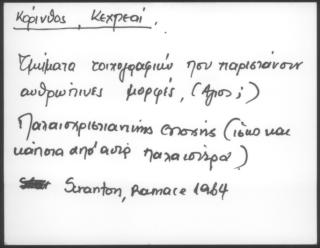 Κόρινθος, Κεχρεαί.
Τμήματα τοιχογραφιών που παριστάνουν
ανθρώπινες μορφές, (Άγιοι;)
Παλαιοχριστιανικής εποχής (ίσως και
κάποια απ' αυτά παλαιότερα)
Scranton, Ramage 1964